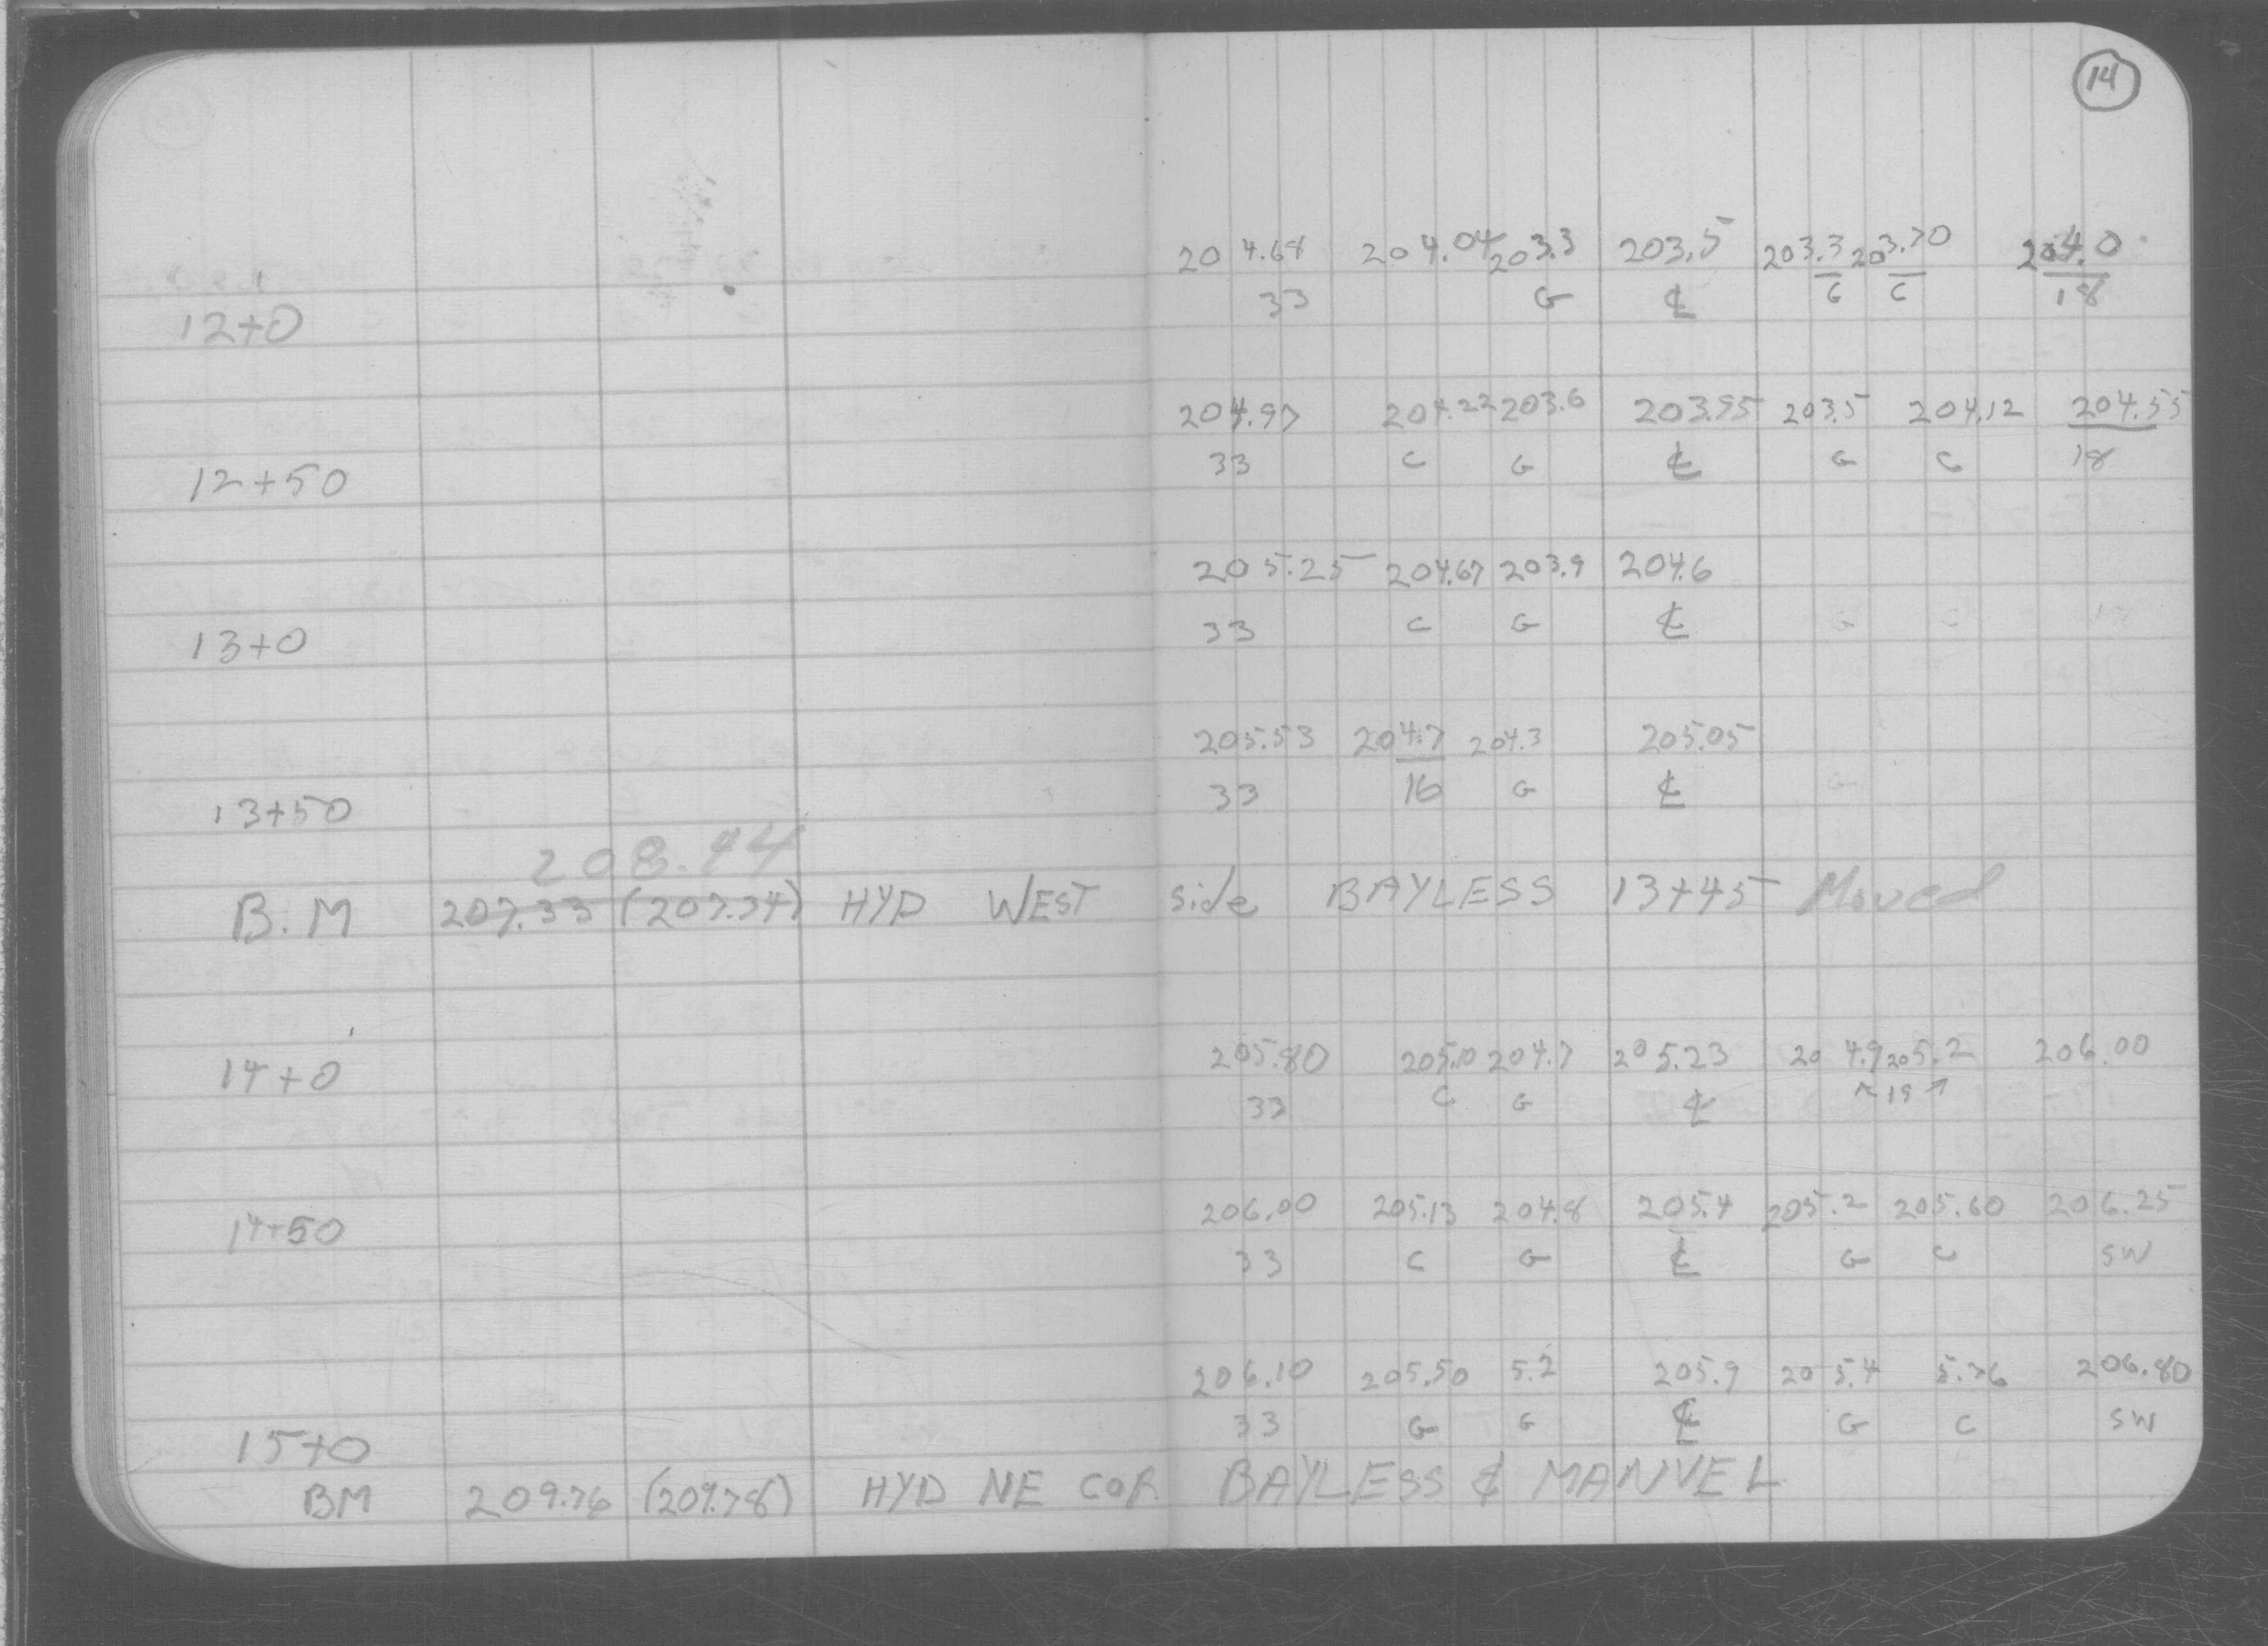 14
204.68 204.04 203.3 203.5 203.3 203.70 204.0
33 G ℄ G C 18
12+0
204.97 204.22 203.6 203.95 203.5 204.12 204.55
33 C G ℄ G C 18
12+50
205.25 204.67 203.9 204.6
33 C G ℄ G C
13+0
205.53 204.7 204.3 205.05
33 16 G ℄ G
13+50
208.94
B.M 207.33 (207.34) HYD WEST side BAYLESS 13+45 Moved
205.80 205.10 204.7 205.23 204.9 205.2 206.00
14+0 33 C G ℄ ↖ 19 ↗
206.00 205.13 204.8 205.4 205.2 205.60 206.25
14+50 33 C G ℄ G C SW
206.10 205.50 5.2 205.9 205.4 5.76 206.80
33 G G ℄ G C SW
15+0
BM 209.76 (209.78) HYD NE COR BAYLESS & MANVEL